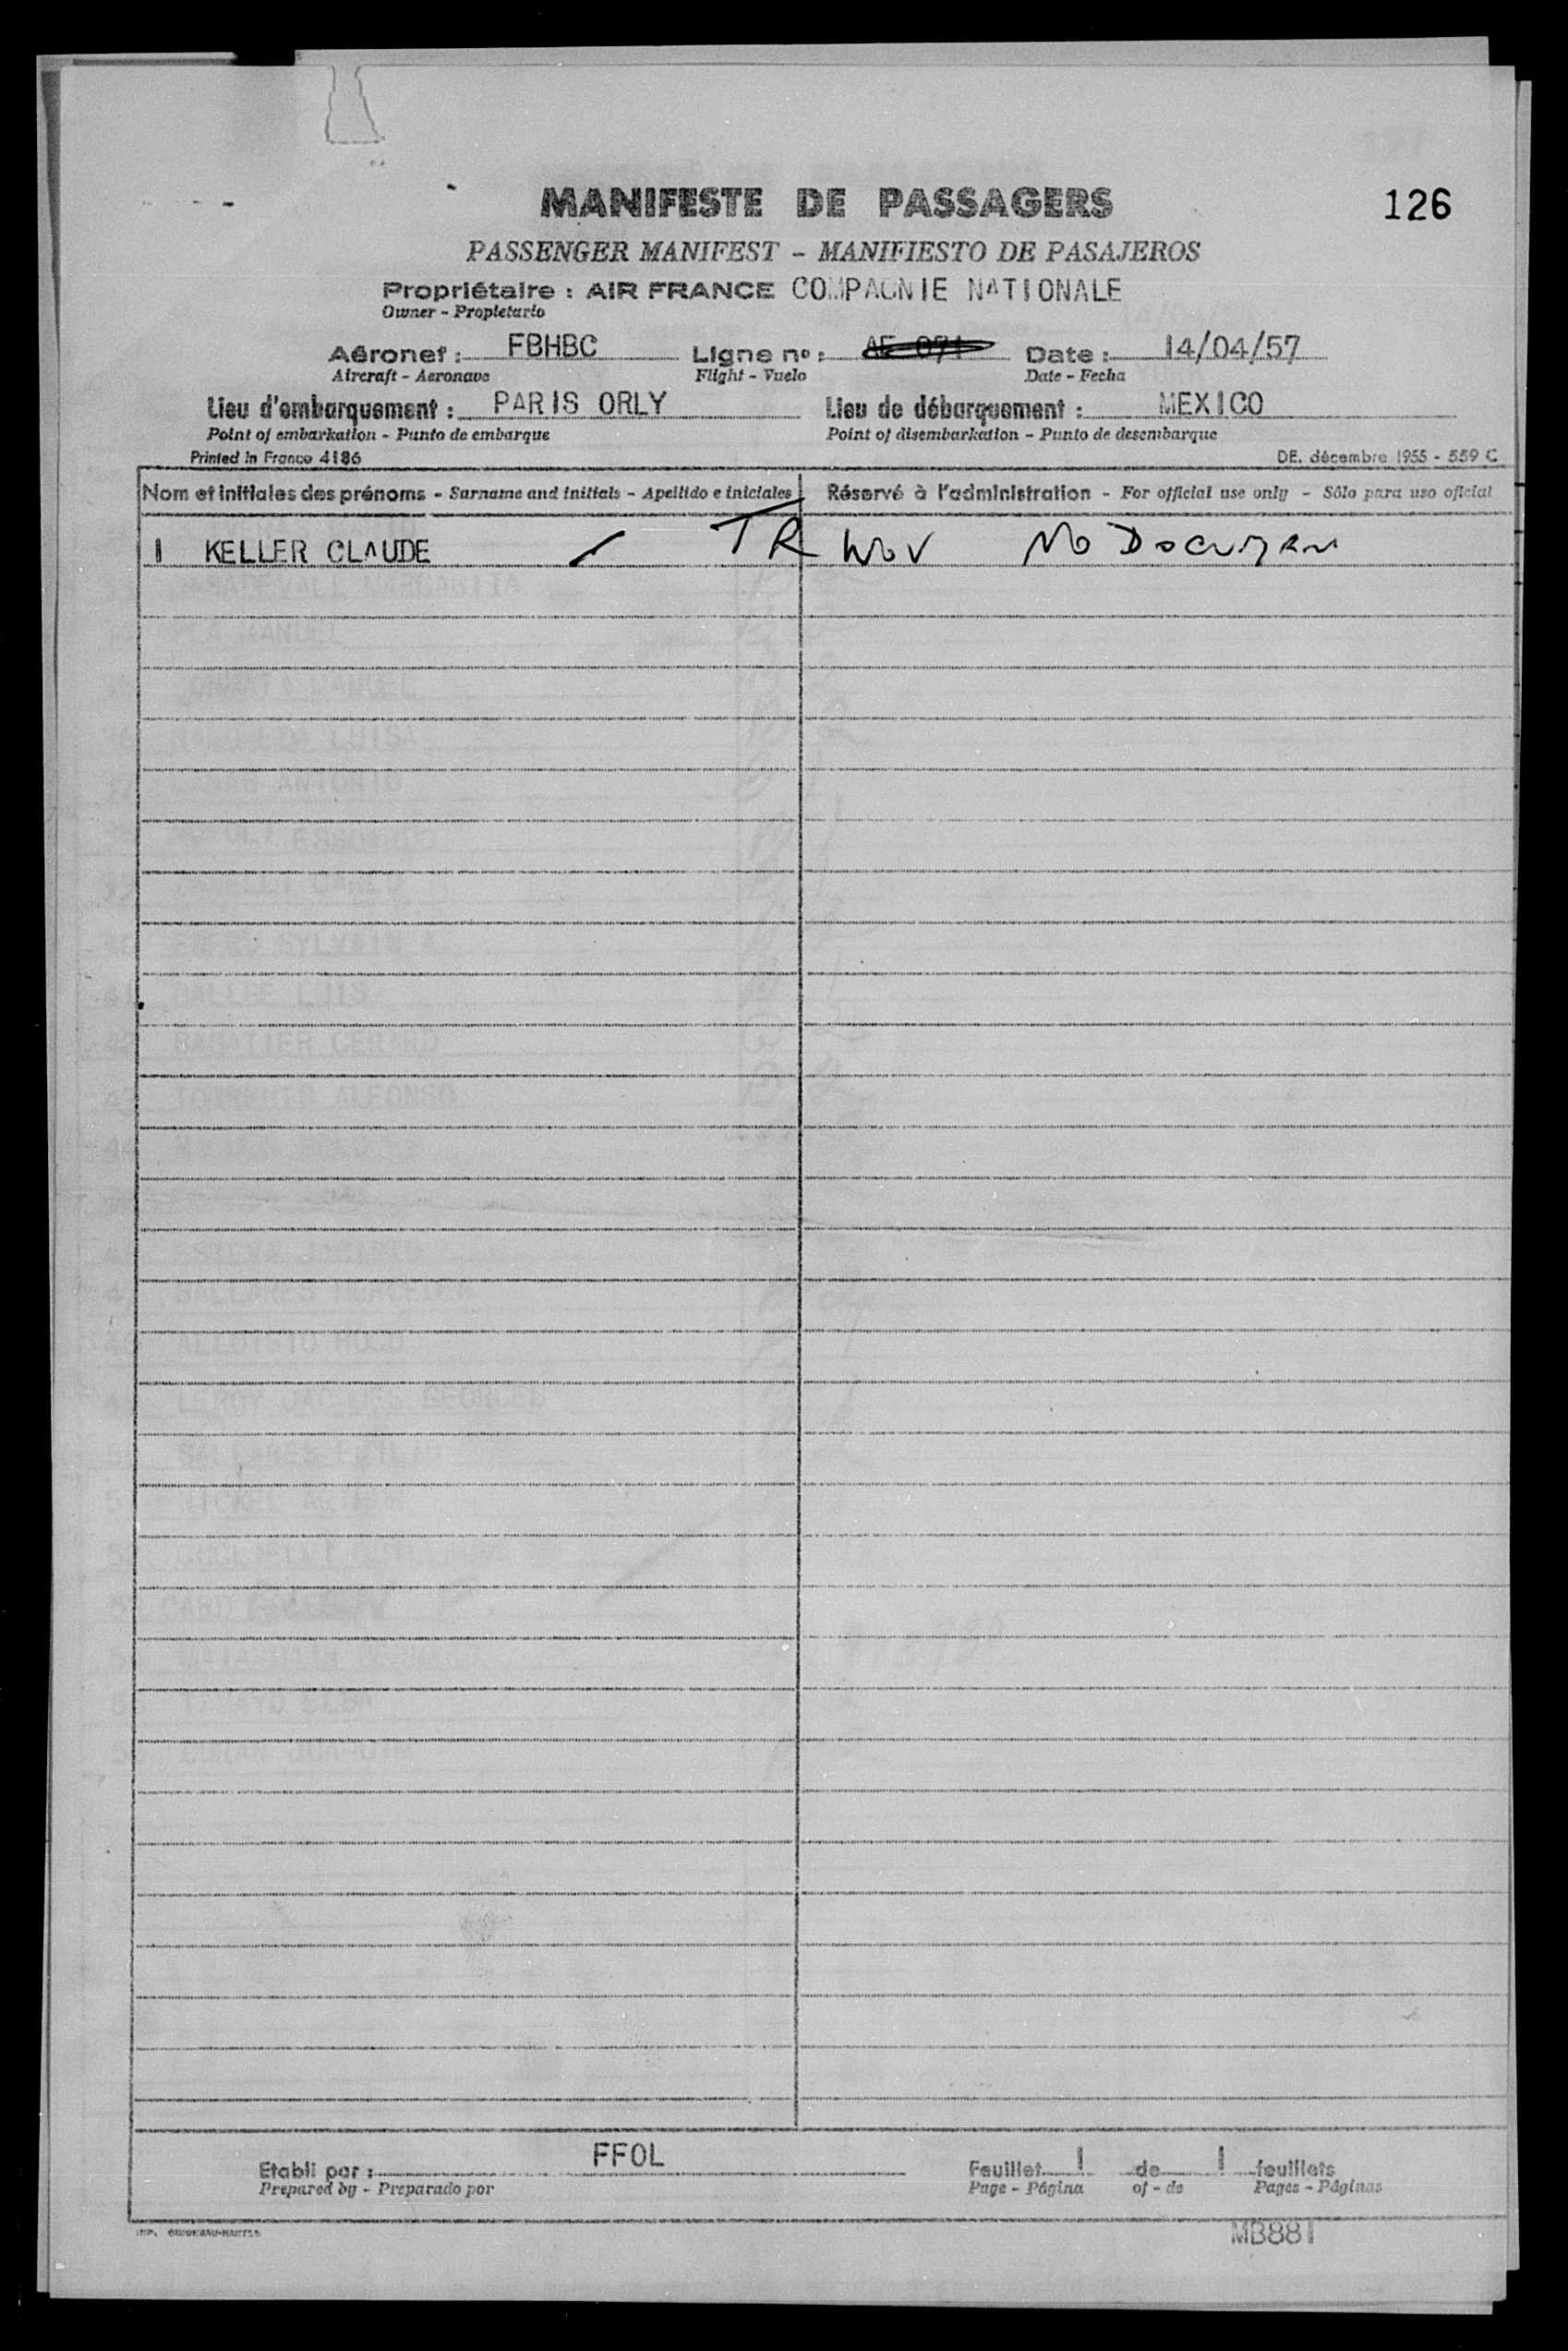 MANIFESTE DE PASSAGERS 126
PASSENGER MANIFEST - MANIFIESTO DE PASAJEROS
Propriétaire : AIR FRANCE COMPAGNIE NATIONALE
Owner - Propietario
Aéronef : FBHBC Ligne nº : AF 071 Date : 14/04/57
Aircraft - Aeronave Flight - Vuelo Date - Fecha
Lieu d'embarquement : PARIS ORLY Lieu de débarquement : MEXICO
Point of embarkation - Punto de embarque Point of disembarkation - Punto de desembarque
Printed in France 4186 DE. décembre 1955 - 559 C
Nom et initiales des prénoms - Surname and initials - Apellido e iniciales Réservé à l'administration - For official use only - Sólo para uso oficial
1 KELLER CLAUDE / TR WOV No Document
Etabli par : FFOL Feuillet 1 de 1 feuillets
Prepared by - Preparado por Page - Página of - de Pages - Páginas
MB881